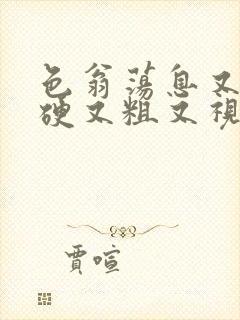 色翁荡息又
硬又粗又视
贾喧